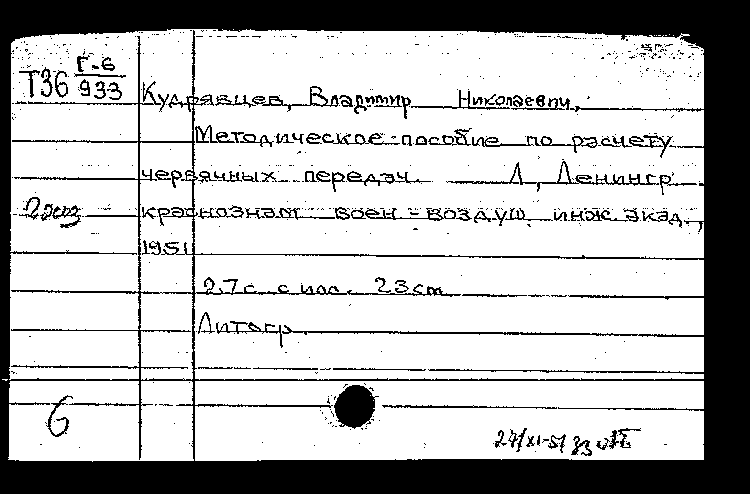 Т36 Г-6/933
Кудрявцев, Владимир Николаевич,
Методическое пособие по расчету
червячных передач. Л, Ленингр.
краснознам. воен-воздуш. инж. акад.,
1951
27 с. с илл. 23 cm
Литогр.
6
27/XI-51